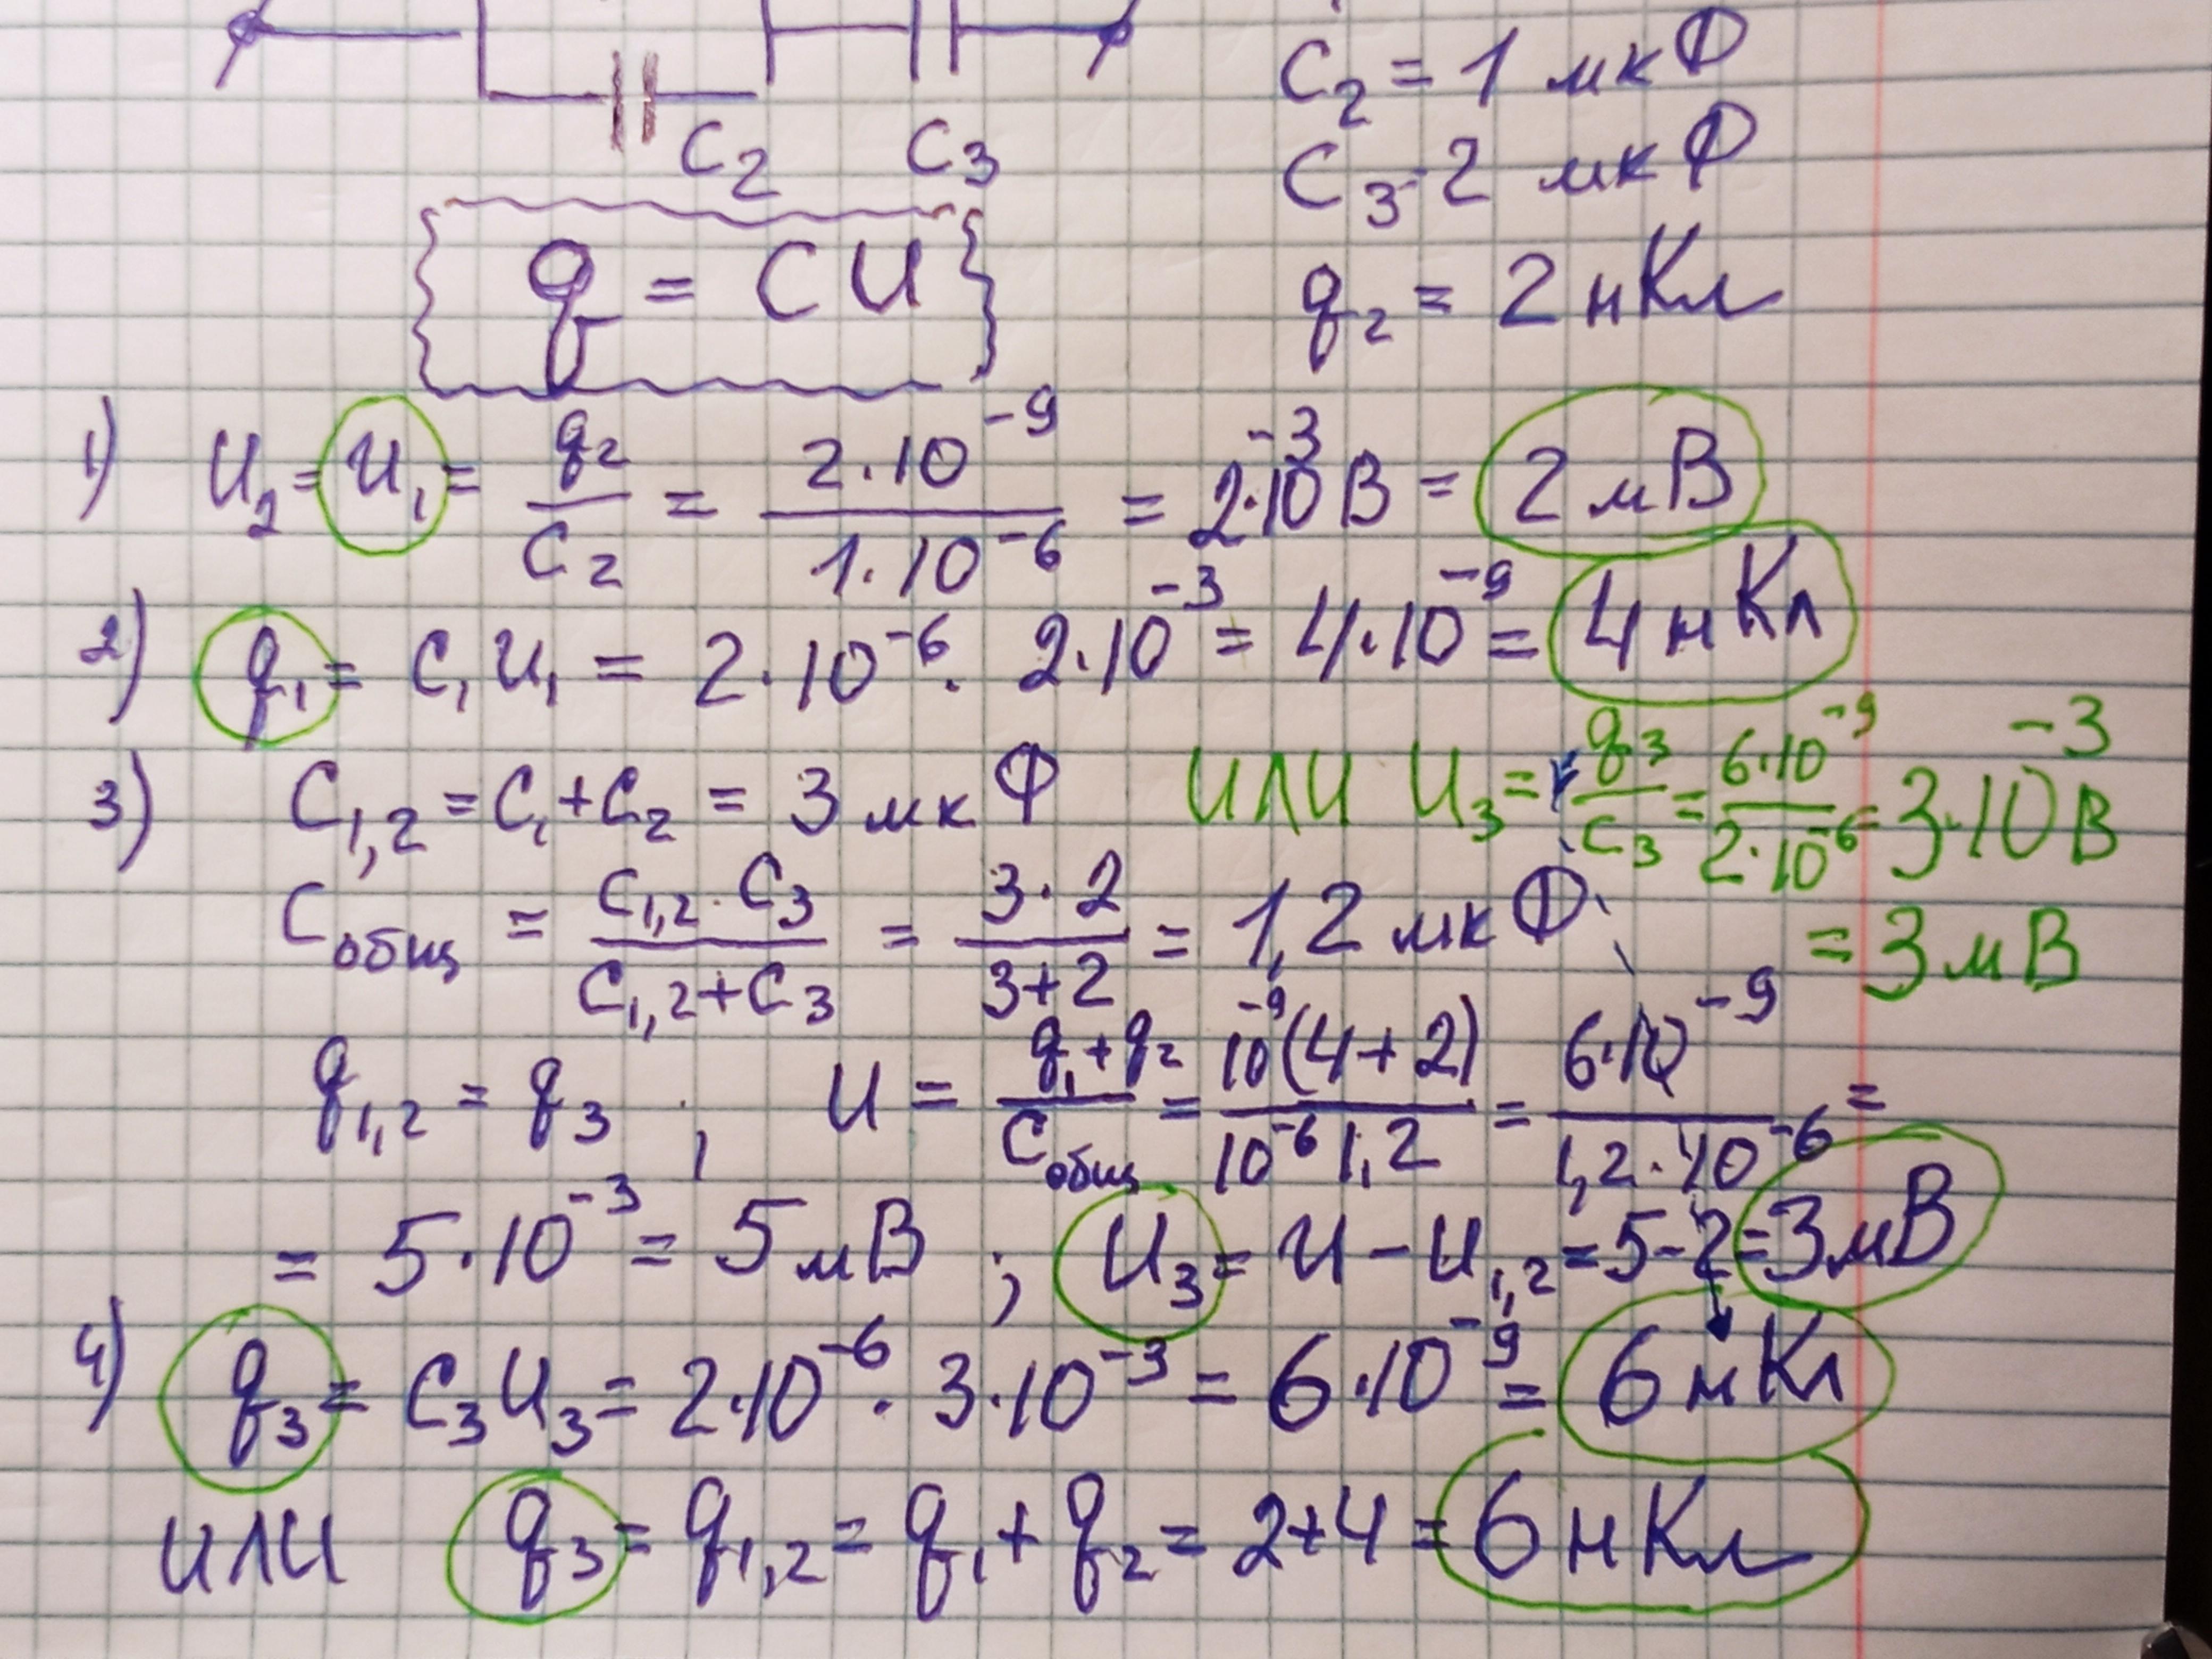 C₂ = 1 мкФ
C₂ C₃
C₃ - 2 мкФ
q = CU
q₂ = 2 нКл
1) U₂ = U₁ = q₂/C₂ = 2·10⁻⁹/1·10⁻⁶ = 2·10⁻³ В = 2 мВ
2) q₁ = C₁U₁ = 2·10⁻⁶ · 2·10⁻³ = 4·10⁻⁹ = 4 нКл
3) C₁,₂ = C₁ + C₂ = 3 мкФ
или U₃ = q₃/C₃ = 6·10⁻⁹/2·10⁻⁶ = 3·10⁻³ В
= 3 мВ
Cобщ = C₁,₂·C₃/C₁,₂+C₃ = 3·2/3+2 = 1,2 мкФ
q₁,₂ = q₃ ; U = q₁+q₂/Cобщ = 10⁻⁹(4+2)/10⁻⁶ 1,2 = 6·10⁻⁹/1,2·10⁻⁶ =
= 5·10⁻³ = 5 мВ ; U₃ = U - U₁,₂ = 5-2 = 3 мВ
4) q₃ = C₃U₃ = 2·10⁻⁶ · 3·10⁻³ = 6·10⁻⁹ = 6 нКл
или q₃ = q₁,₂ = q₁ + q₂ = 2+4 = 6 нКл